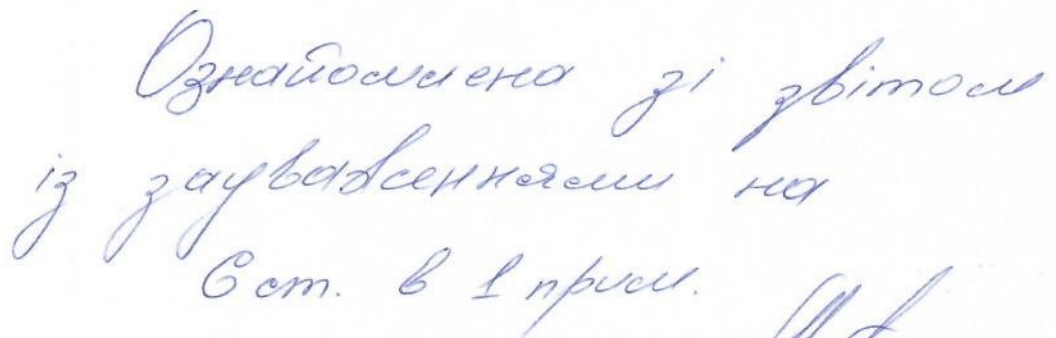 Ознайомлена зі звітом
із зауваженнями на
6 ст. в 1 прим.